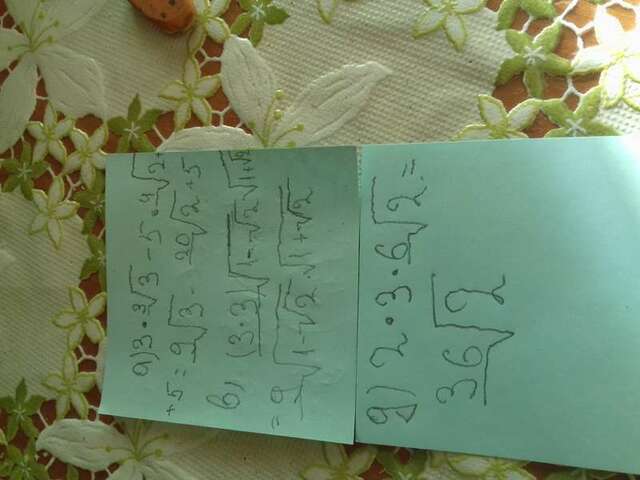 а) 3·3√3 - 5·4√2 +
+5 = 9√3 - 20√2 + 5
в) (3·3)√1-√2 √1+√2
= 9√1-√2 · √1+√2
д) 2·3·6√2 =
36√2